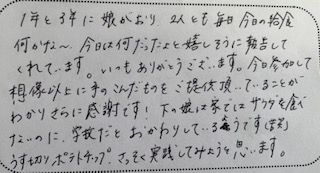 1年と3年に娘がおり 2人とも毎日今日の給食
何かな〜、今日は何だったよと嬉しそうに報告して
くれています。いつもありがとうございます。今日参加して
想像以上に手のこんだものをご提供頂いていることが
わかりさらに感謝です！下の娘は家ではサラダを食べ
ないのに、学校だとおかわりしているようです(笑)
うす切りポテトチップ、さっそく実践してみようと思います。